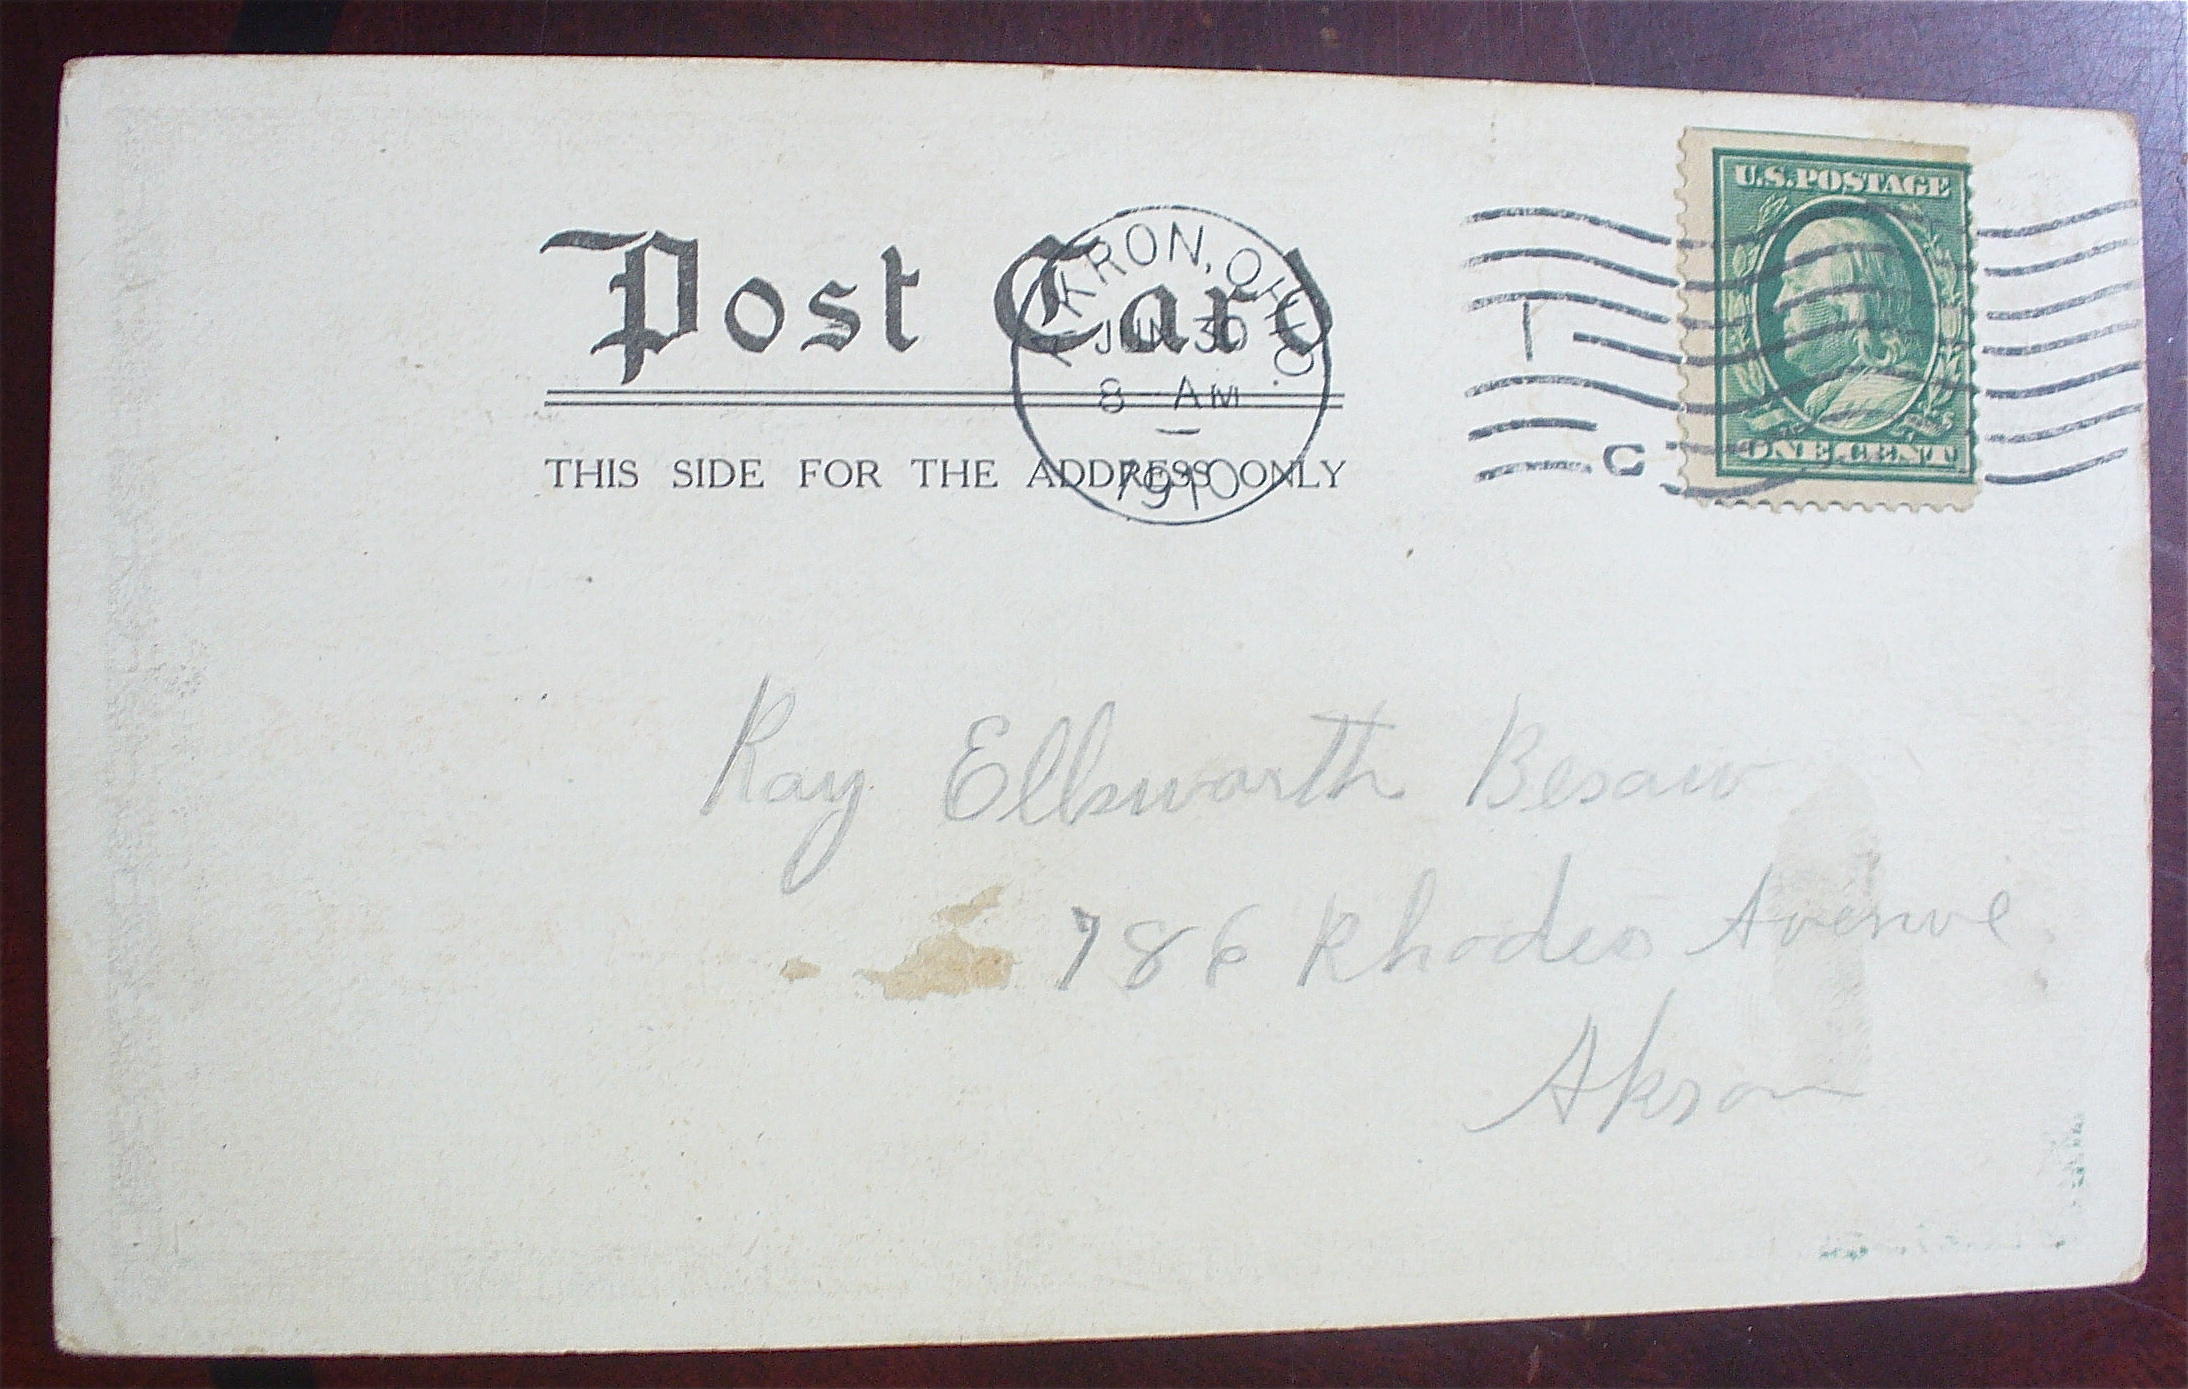 U.S. POSTAGE
Post Card
AKRON, OHIO
JUN 30
8 AM
1910
ONE CENT
C
THIS SIDE FOR THE ADDRESS ONLY
Ray Ellsworth Besaw
786 Rhodes Avenue
Akron